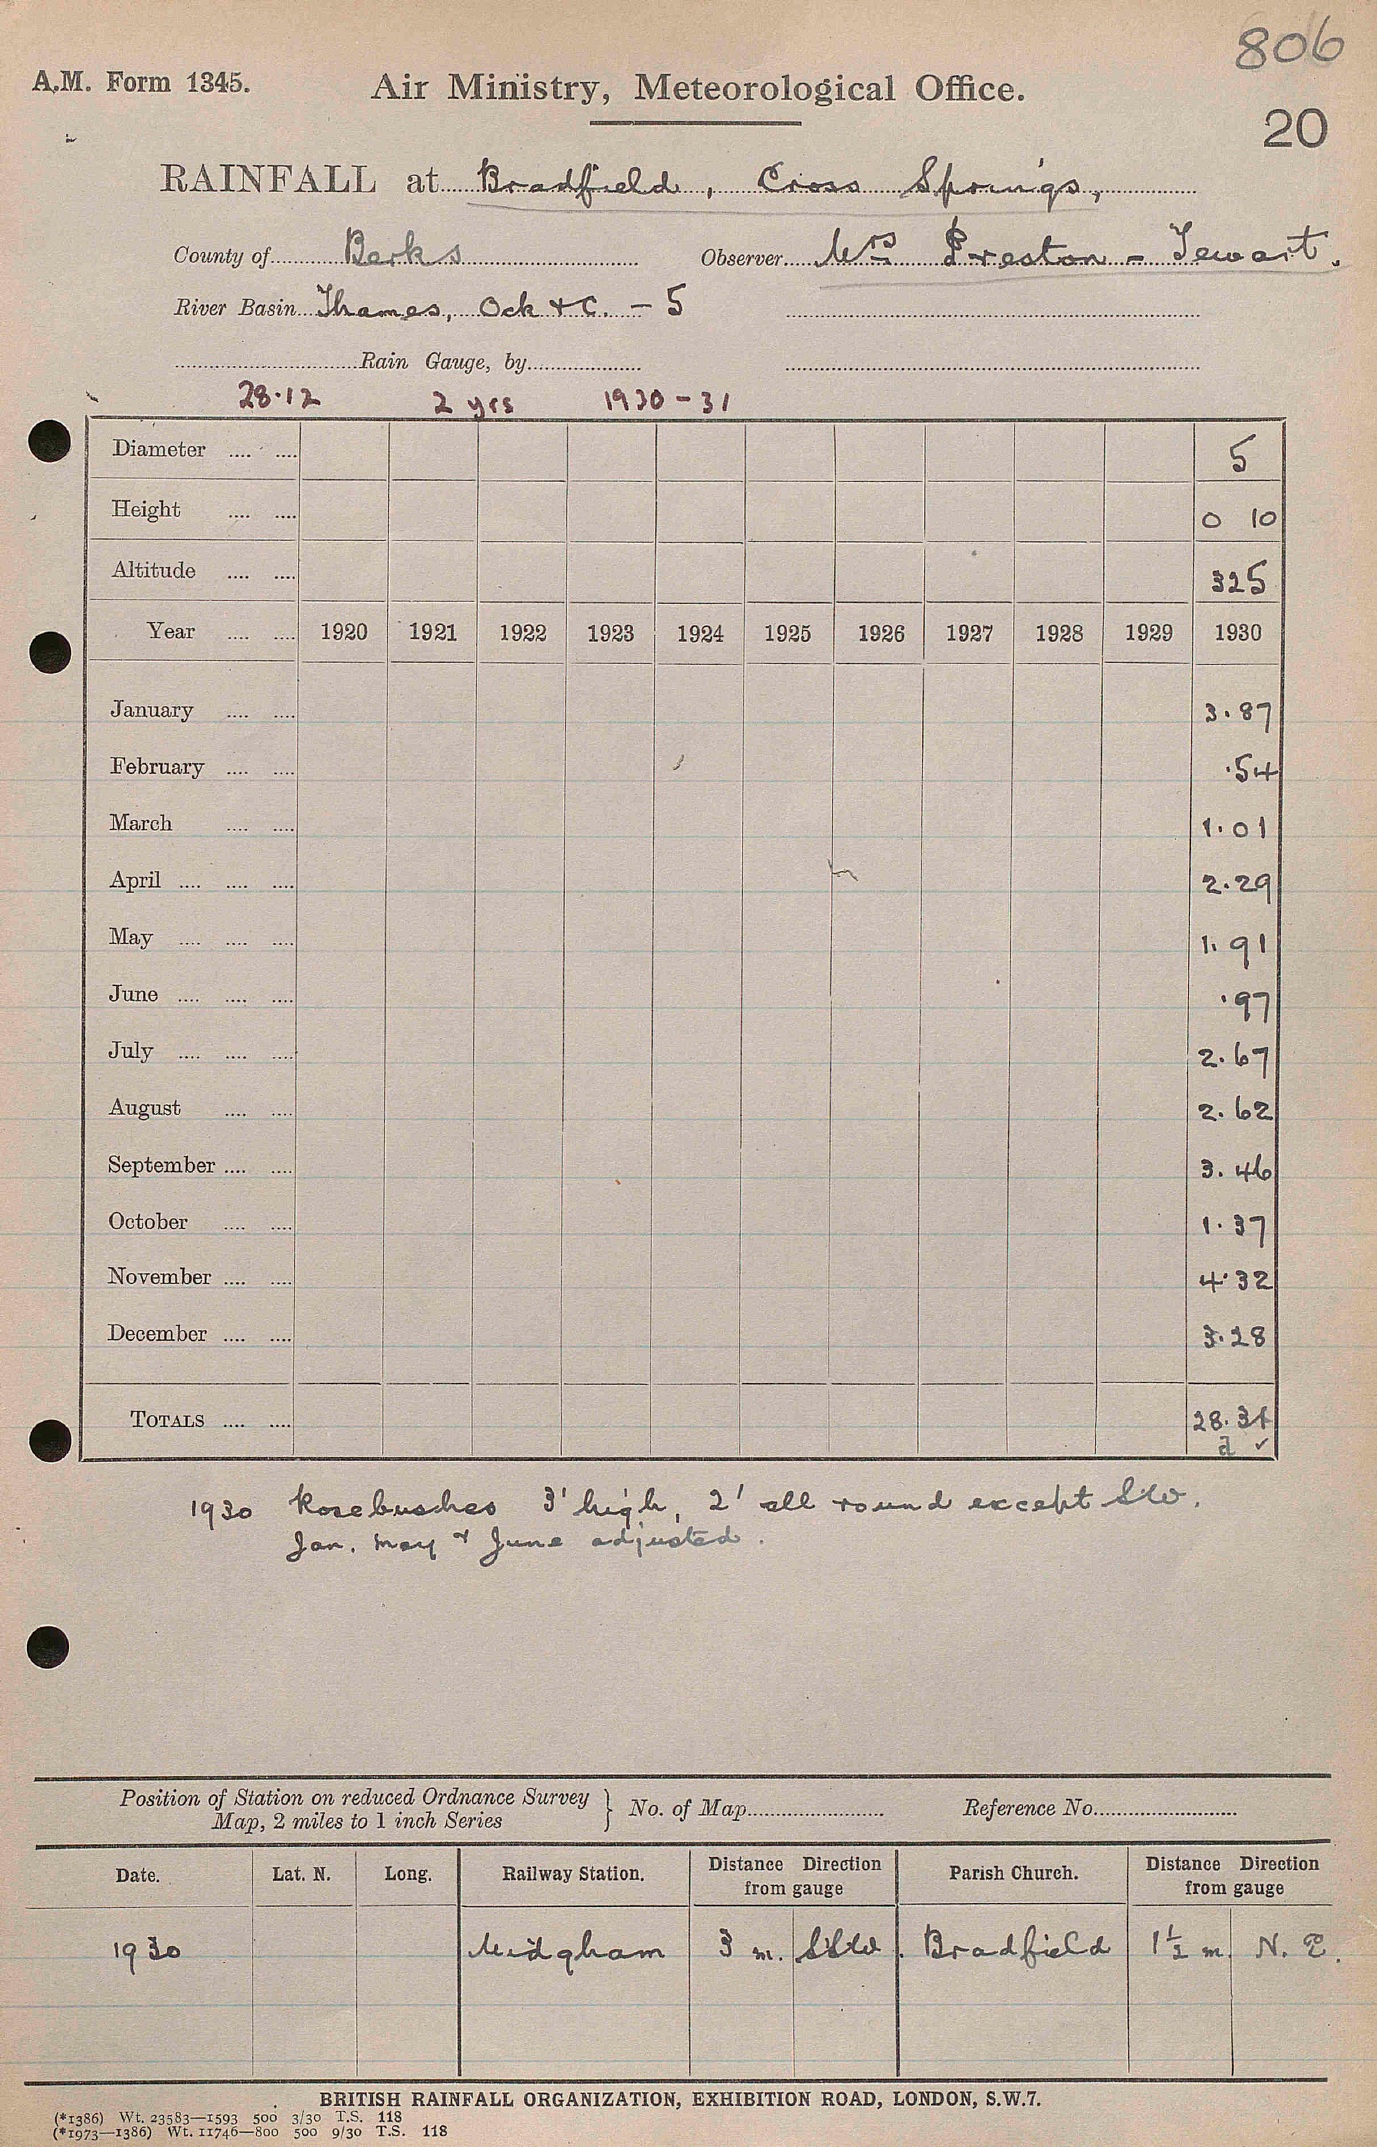 806
A.M. Form 1345. Air Ministry, Meteorological Office.
20
RAINFALL at Bradfield, Cross Springs,
County of Berks Observer Mrs Preston - Tewart.
River Basin Thames, Ock & C. - 5
Rain Gauge, by
28.12 2 yrs 1930-31
Diameter .... .... 5
Height .... .... 0 10
Altitude .... .... 325
Year .... .... 1920 1921 1922 1923 1924 1925 1926 1927 1928 1929 1930
January .... .... 3.87
February .... .... .54
March .... .... 1.01
April .... .... .... 2.29
May .... .... .... 1.91
June .... .... .... .97
July .... .... .... 2.67
August .... .... 2.62
September .... .... 3.46
October .... .... 1.37
November .... .... 4.32
December .... .... 3.28
TOTALS .... .... 28.31
a ✓
1930 Rosebushes 3' high, 2' all round except SW.
Jan. May & June adjusted.
Position of Station on reduced Ordnance Survey
Map, 2 miles to 1 inch Series } No. of Map Reference No.
Date. Lat. N. Long. Railway Station. Distance Direction from gauge Parish Church. Distance Direction from gauge
1930 Midgham 3 m. SSW. Bradfield 1½ m. N. E.
BRITISH RAINFALL ORGANIZATION, EXHIBITION ROAD, LONDON, S.W.7.
(*1386) Wt. 23583—1593 500 3/30 T.S. 118
(*1973—1386) Wt. 11746—800 500 9/30 T.S. 118